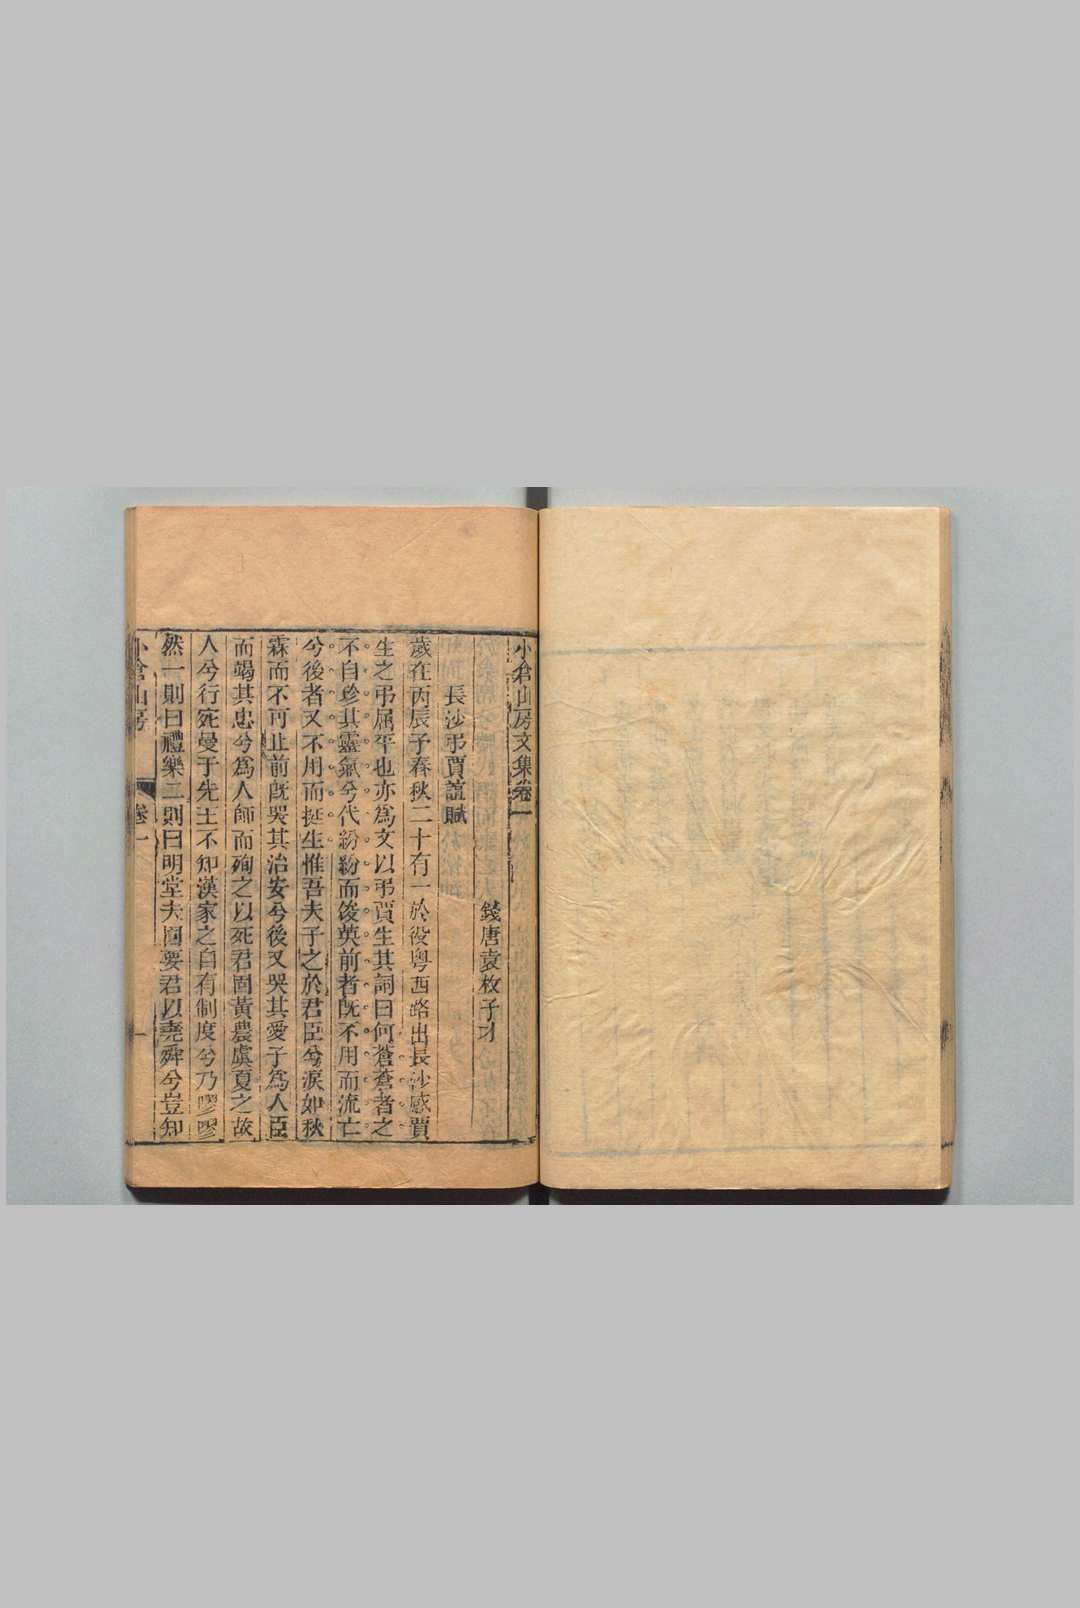 小倉山房文集卷一
錢唐袁枚子才
長沙弔賈誼賦
歲在丙辰予春秋二十有一於役粤西路出長沙感賈
生之弔屈平也亦為文以弔賈生其詞曰何蒼蒼者之
不自珍其靈氣兮代紛紛而俊英前者既不用而流亡
兮後者又不用而挺生惟吾夫子之於君臣兮淚如秋
霖而不可止前既哭其治安兮後又哭其愛子為人臣
而竭其忠兮為人師而殉之以死君固黃農虞夏之故
人兮行宛曼于先王不知漢家之自有制度兮乃嘐嘐
然一則曰禮樂二則曰明堂夫固要君以堯舜兮豈知
小倉山房 卷一 一